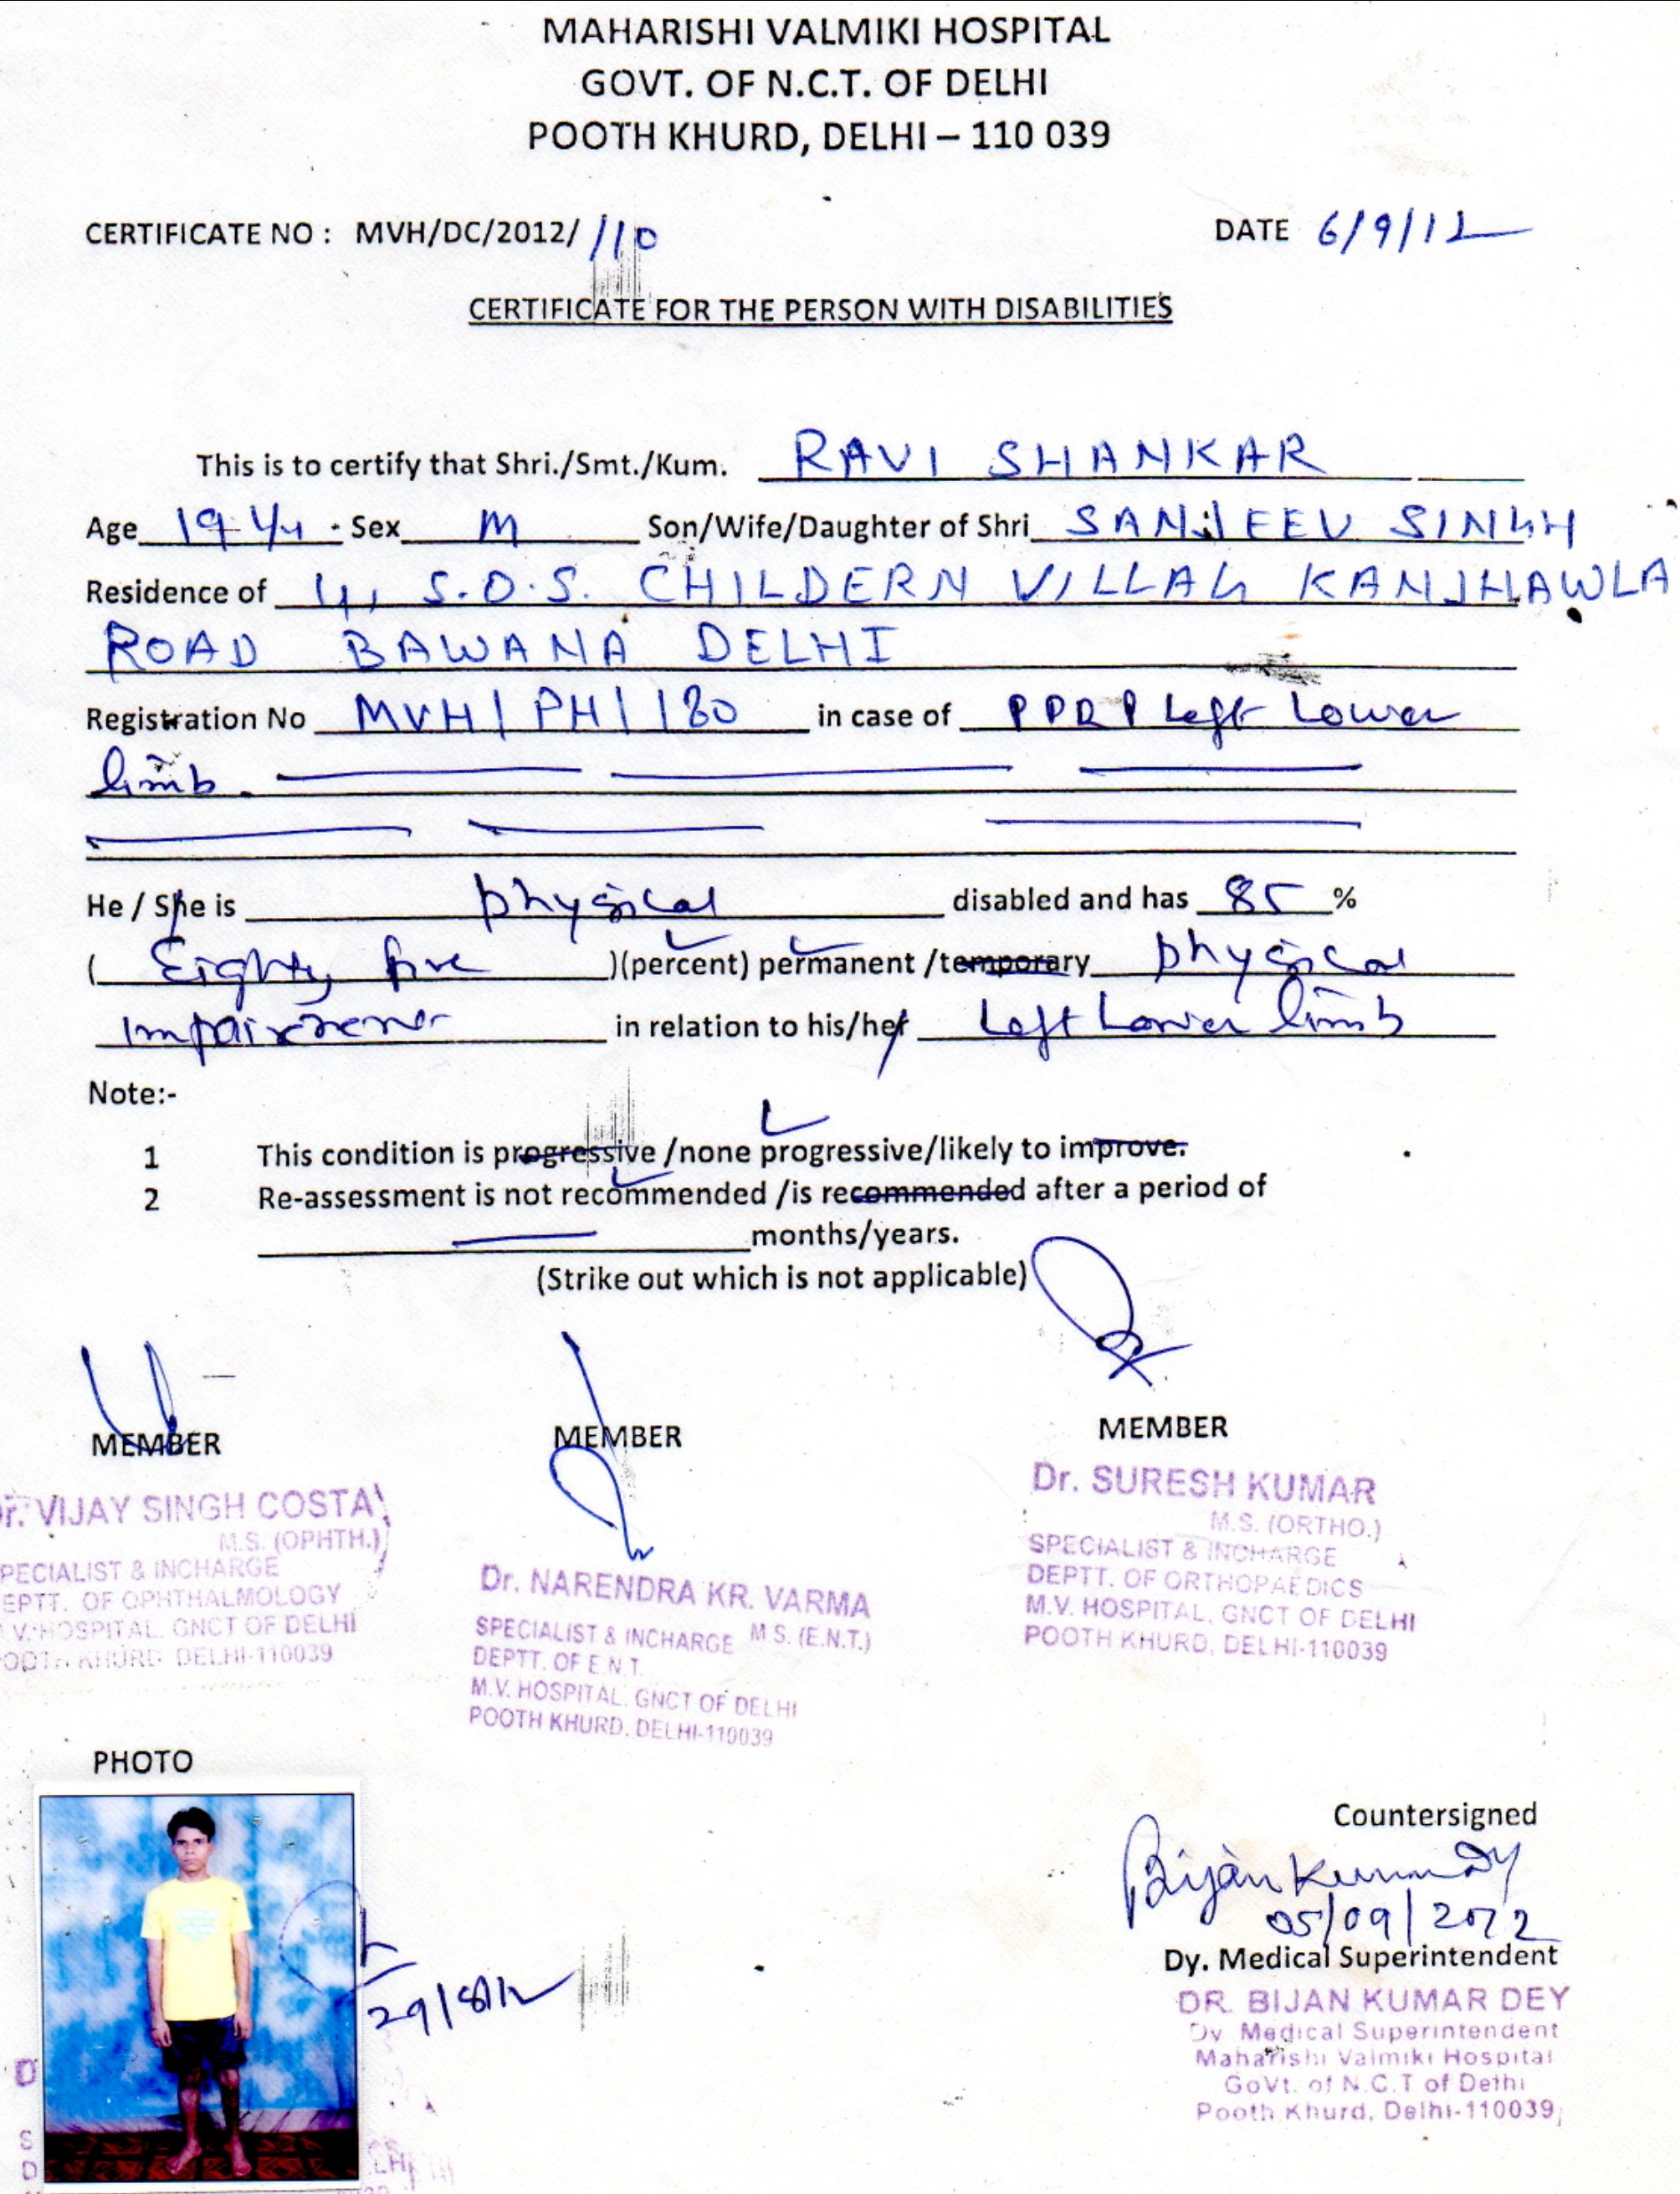 MAHARISHI VALMIKI HOSPITAL
GOVT. OF N.C.T. OF DELHI
POOTH KHURD, DELHI – 110 039
CERTIFICATE NO : MVH/DC/2012/110 DATE 6/9/12
CERTIFICATE FOR THE PERSON WITH DISABILITIES
This is to certify that Shri./Smt./Kum. RAVI SHANKAR
Age 19 Y/4 Sex M Son/Wife/Daughter of Shri SANJEEV SINGH
Residence of 4, S.O.S. CHILDERN VILLAG KANJHAWLA
ROAD BAWANA DELHI
Registration No MVH/PH/180 in case of PPRP Left Lower
limb.
He / She is physical disabled and has 85 %
( Eighty five )(percent) permanent /temporary physical
impairment in relation to his/her Left Lower limb
Note:-
1 This condition is progressive /none progressive/likely to improve.
2 Re-assessment is not recommended /is recommended after a period of
months/years.
(Strike out which is not applicable)
MEMBER MEMBER MEMBER
Dr. VIJAY SINGH COSTA
M.S. (OPHTH.)
PECIALIST & INCHARGE
EPTT. OF OPHTHALMOLOGY
V. HOSPITAL, GNCT OF DELHI
OOTH KHURD DELHI-110039
Dr. NARENDRA KR. VARMA
M.S. (E.N.T.)
SPECIALIST & INCHARGE
DEPTT. OF E.N.T.
M.V. HOSPITAL, GNCT OF DELHI
POOTH KHURD, DELHI-110039
Dr. SURESH KUMAR
M.S. (ORTHO.)
SPECIALIST & INCHARGE
DEPTT. OF ORTHOPAEDICS
M.V. HOSPITAL, GNCT OF DELHI
POOTH KHURD, DELHI-110039
PHOTO
29/8/12
Countersigned
Bijan Kumar Dey
05/09/2012
Dy. Medical Superintendent
DR. BIJAN KUMAR DEY
Dy Medical Superintendent
Maharishi Valmiki Hospital
GoVt. of N.C.T of Delhi
Pooth Khurd, Delhi-110039